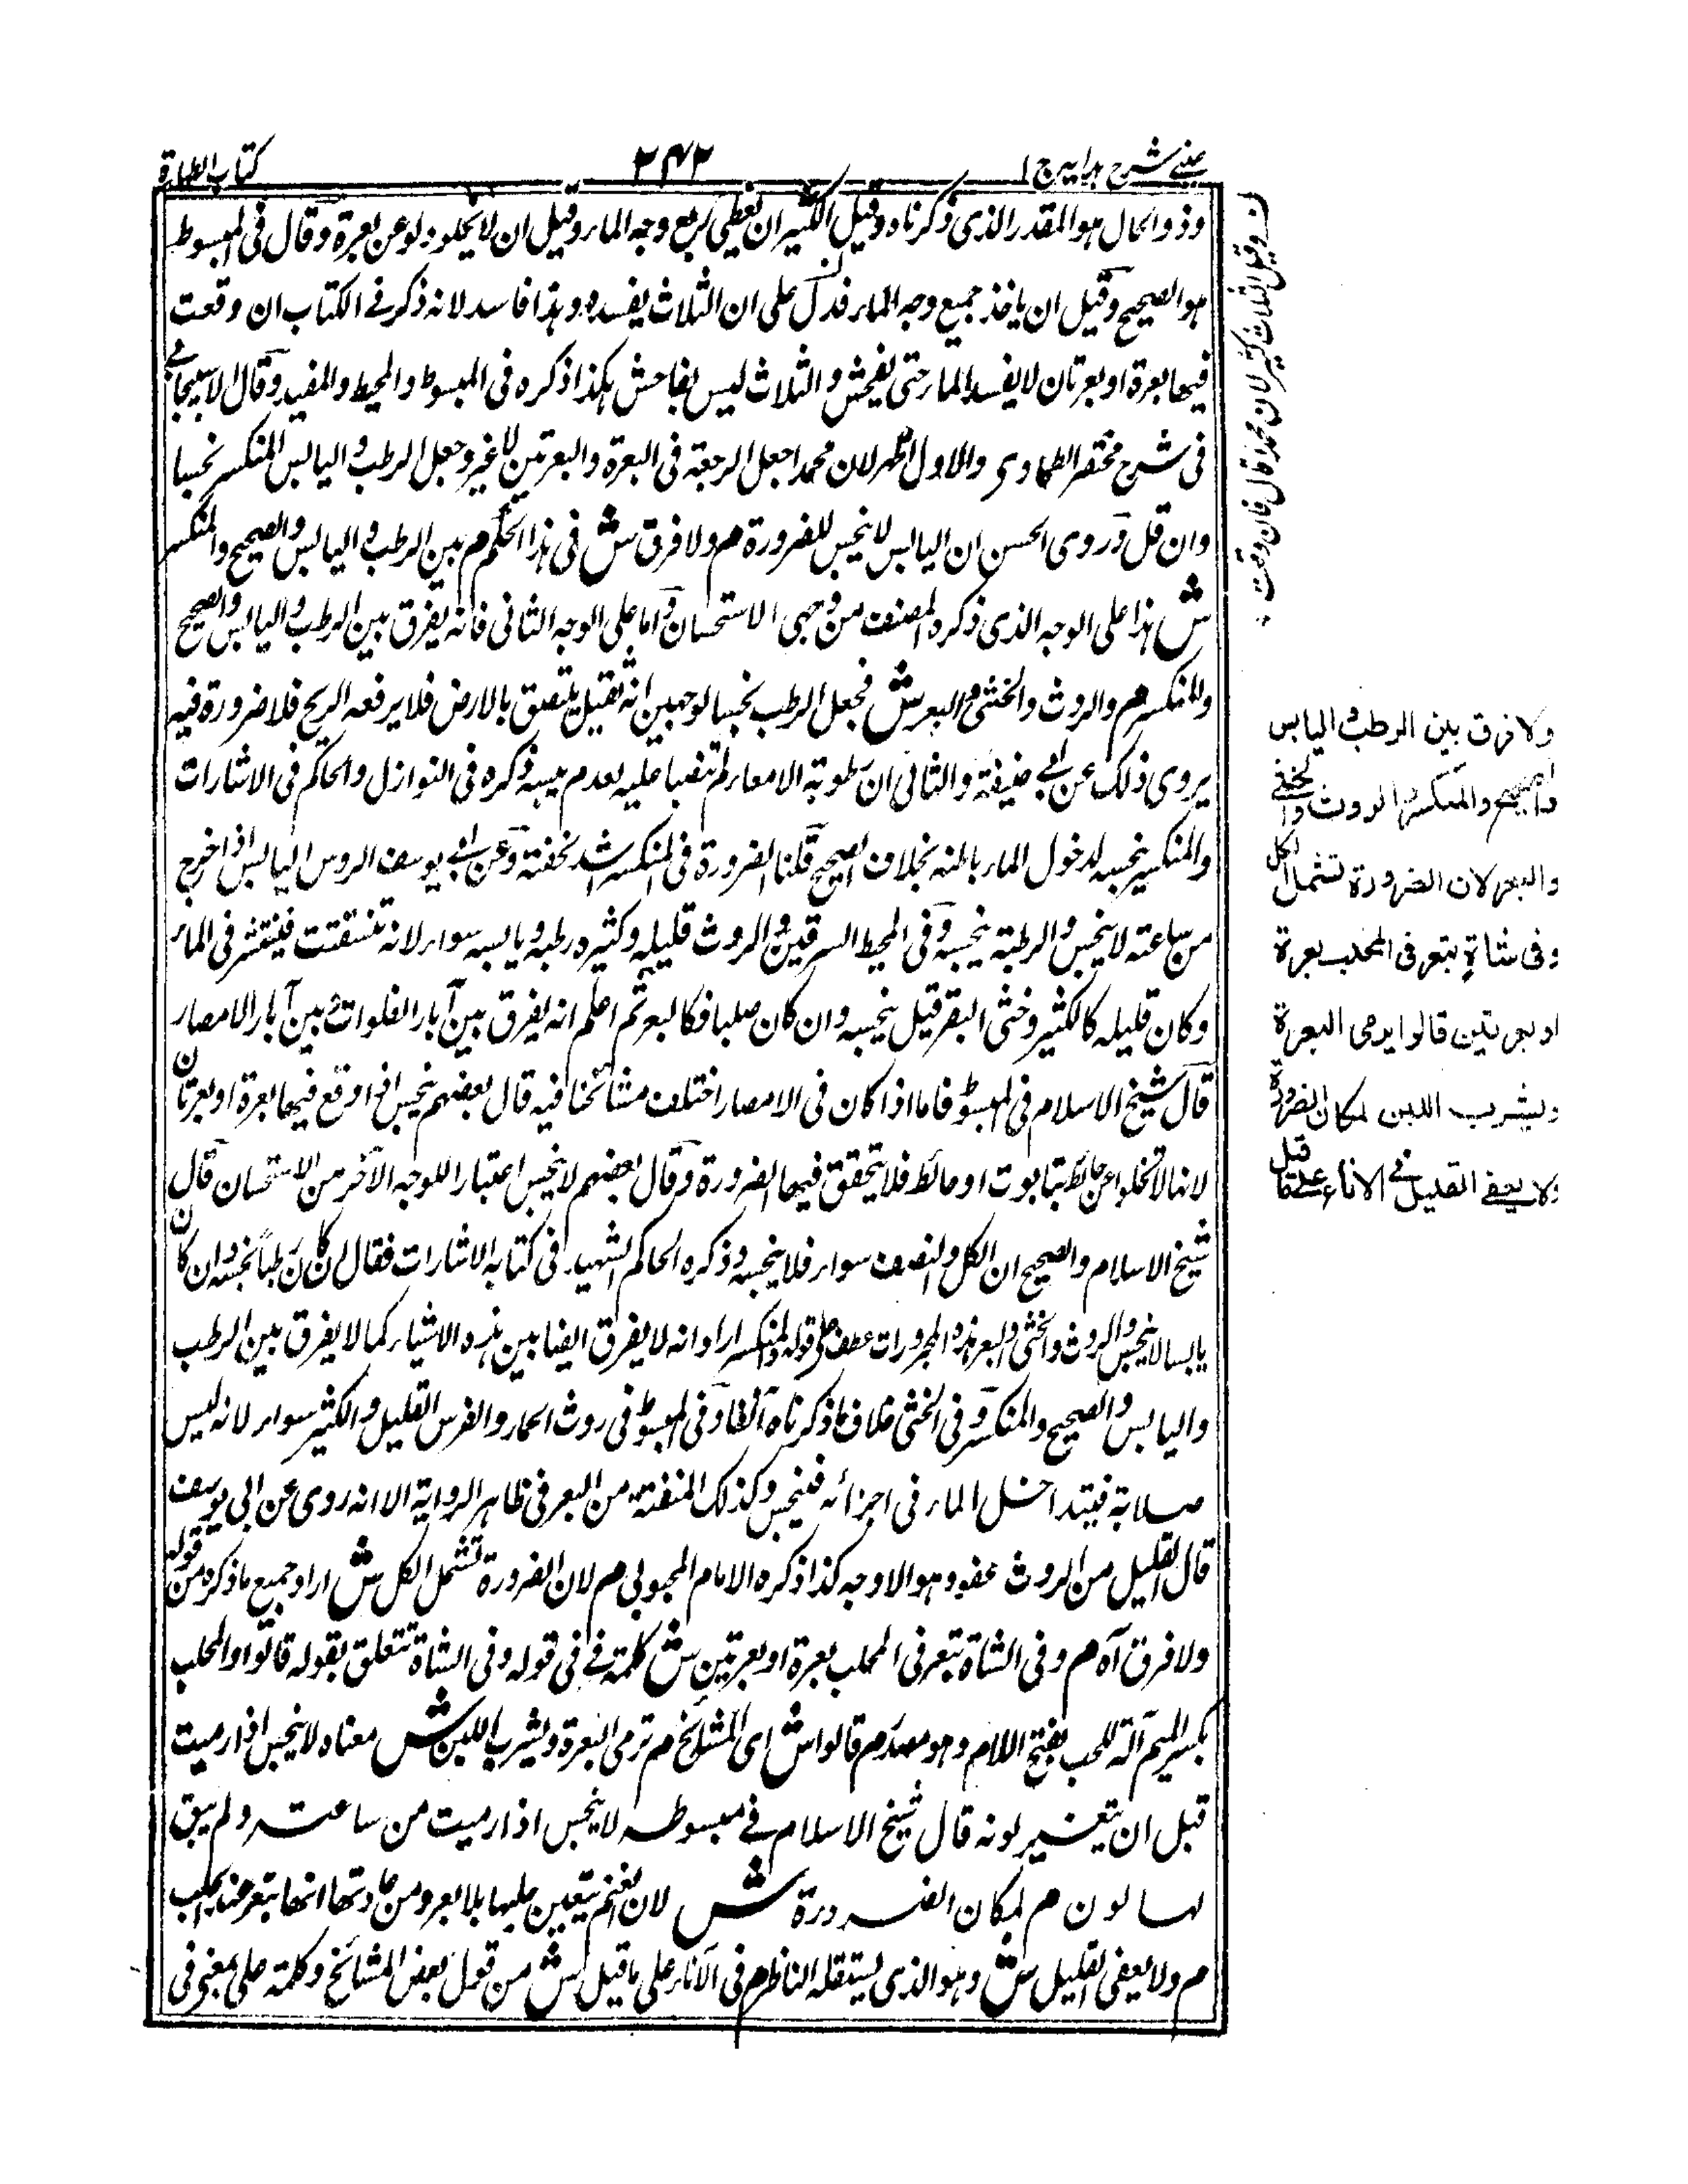 عینے شرح ہدایہ ج ۱
۲۴۲
کتاب الطهارة
وذو الحال هو المقدر الذى ذكرناه وقيل الكثير ان يغطى ربع وجه الماء وقيل ان لا يخلو دلو عن بعرة وقال فى المبسوط
هو الصحيح وقيل ان ياخذ جميع وجه الماء فدل على ان الثلاث يفسده وهذا فاسد لانه ذكر فے الكتاب ان وقعت
فيها بعرة او بعرتان لا يفسد الماء حتى يفحش والثلاث ليس بفاحش هكذا ذكره فى المبسوط والمحيط والمفيد وقال الاسبيجابے
فى شرح مختصر الطحاوى والاول اظهر لان محمدا جعل الرجعة فى البعرة والبعرتين لا غير وجعل الرطب واليابس المنكسر نجسا
وان قل وروى الحسن ان اليابس لا ينجس للضرورة م ولا فرق ش فى هذا الحكم م بين الرطب واليابس والصحيح والمنكسر
ش هذا على الوجه الذى ذكره المصنف من وجهى الاستحسان واما على الوجه الثانى فانه يفرق بين الرطب واليابس والصحيح
والمنكسر م والروث والخثى والبعر ش فجعل الرطب نجسا لوجهين انه ثقيل يلتصق بالارض فلا يرفعه الريح فلا ضرورة فيه
يروى ذلك عن ابے حنيفة والثانى ان رطوبة الامعاء لم عليه لعدم يبسه ذكره فى النوازل والحاكم فى الاشارات
والمنكسر ينجسه لدخول الماء باطنه بخلاف الصحيح قلنا الضرورة فى المنكسر اشد لخفته وعن ابے يوسف الروس اليابس اذا خرج
من ساعته لا ينجس والرطبة ينجسه وفى المحيط السرقين والروث قليله وكثيره رطبه ويابسه سواء لانه فينتشر فى الماء
وكان قليله كالكثير وخثى البقر قيل ينجسه وان كان صلبا فكالبعر ثم اعلم انه يفرق بين آبار الفلوات وبين آبار الامصار
قال شيخ الاسلام فى المبسوط فاما اذا كان فى الامصار اختلف مشائخنا فيه قال بعضهم ينجس اذا وقع فيها بعرة او بعرتان
لانها لا تخلوا عن حائط بتابوت او حائط فلا يتحقق فيها الضرورة وقال بعضهم لا ينجس اعتبارا للوجه الآخر من الاستحسان قال
شيخ الاسلام والصحيح ان الكل والنصف سواء فلا ينجسه وذكره الحاكم الشهيد فى كتابه الاشارات فقال ان كان رطبا نجسه وان كان
يابسا لا ينجس والروث والخثى والبعر هذه المجرورات عطف على قوله والمنكسر اراد انه لا يفرق ايضا بين هذه الاشياء كما لا يفرق بين الرطب
واليابس والصحيح والمنكسر وفى الخثى خلاف ما ذكرناه آنفا وفى المبسوط فى روث الحمار والفرس القليل والكثير سواء لانه ليس
صلابة فيتداخل الماء فى اجزائه فينجس وكذلك المنفتة من البعر فى ظاهر الرواية الا انه روى عن ابى يوسف
قال القليل من الروث عفو وهو الاوجه كذا ذكره الامام المحبوبى م لان الضرورة تشمل الكل ش اراد جميع ما ذكره من قوله
ولا فرق آه م وفى الشاة تبعر فى المحلب بعرة او بعرتين ش كلمة فے فى قوله وفى الشاة تتعلق بقوله قالوا والمحلب
بكسر الميم آلة للحلب بفتح اللام وهو مصدر م قالوا ش اى المشائخ م ترمى البعرة ويشرب اللبن ش معناه لا ينجس اذا رميت
قبل ان يتغير لونه قال شيخ الاسلام فے مبسوطه لا ينجس اذا رميت من ساعته ولم يبق
لها لون م لمكان الضرورة ش لان الغنم يتعين حلبها بلا بعر ومن عادتها انها تبعر عند الحلب
م ولا يعفى القليل ش وهو الذى يستقله الناظر م فى الاناء على ما قيل ش من قول بعض المشائخ وكلمة على بمعنى فى
ن وقيل الثلاث كثير لان محمدا قال فان وقعت
ولا فرق بين الرطب واليابس
والصحيح والمنكسر والروث والخثى
والبعر لان الضرورة تشمل الكل
وفى شاة تبعر فى المحلب بعرة
او بعرتين قالوا يرمى البعرة
ويشرب اللبن لمكان الضرورة
ولا يعفے القليل فے الاناء علے ما قيل